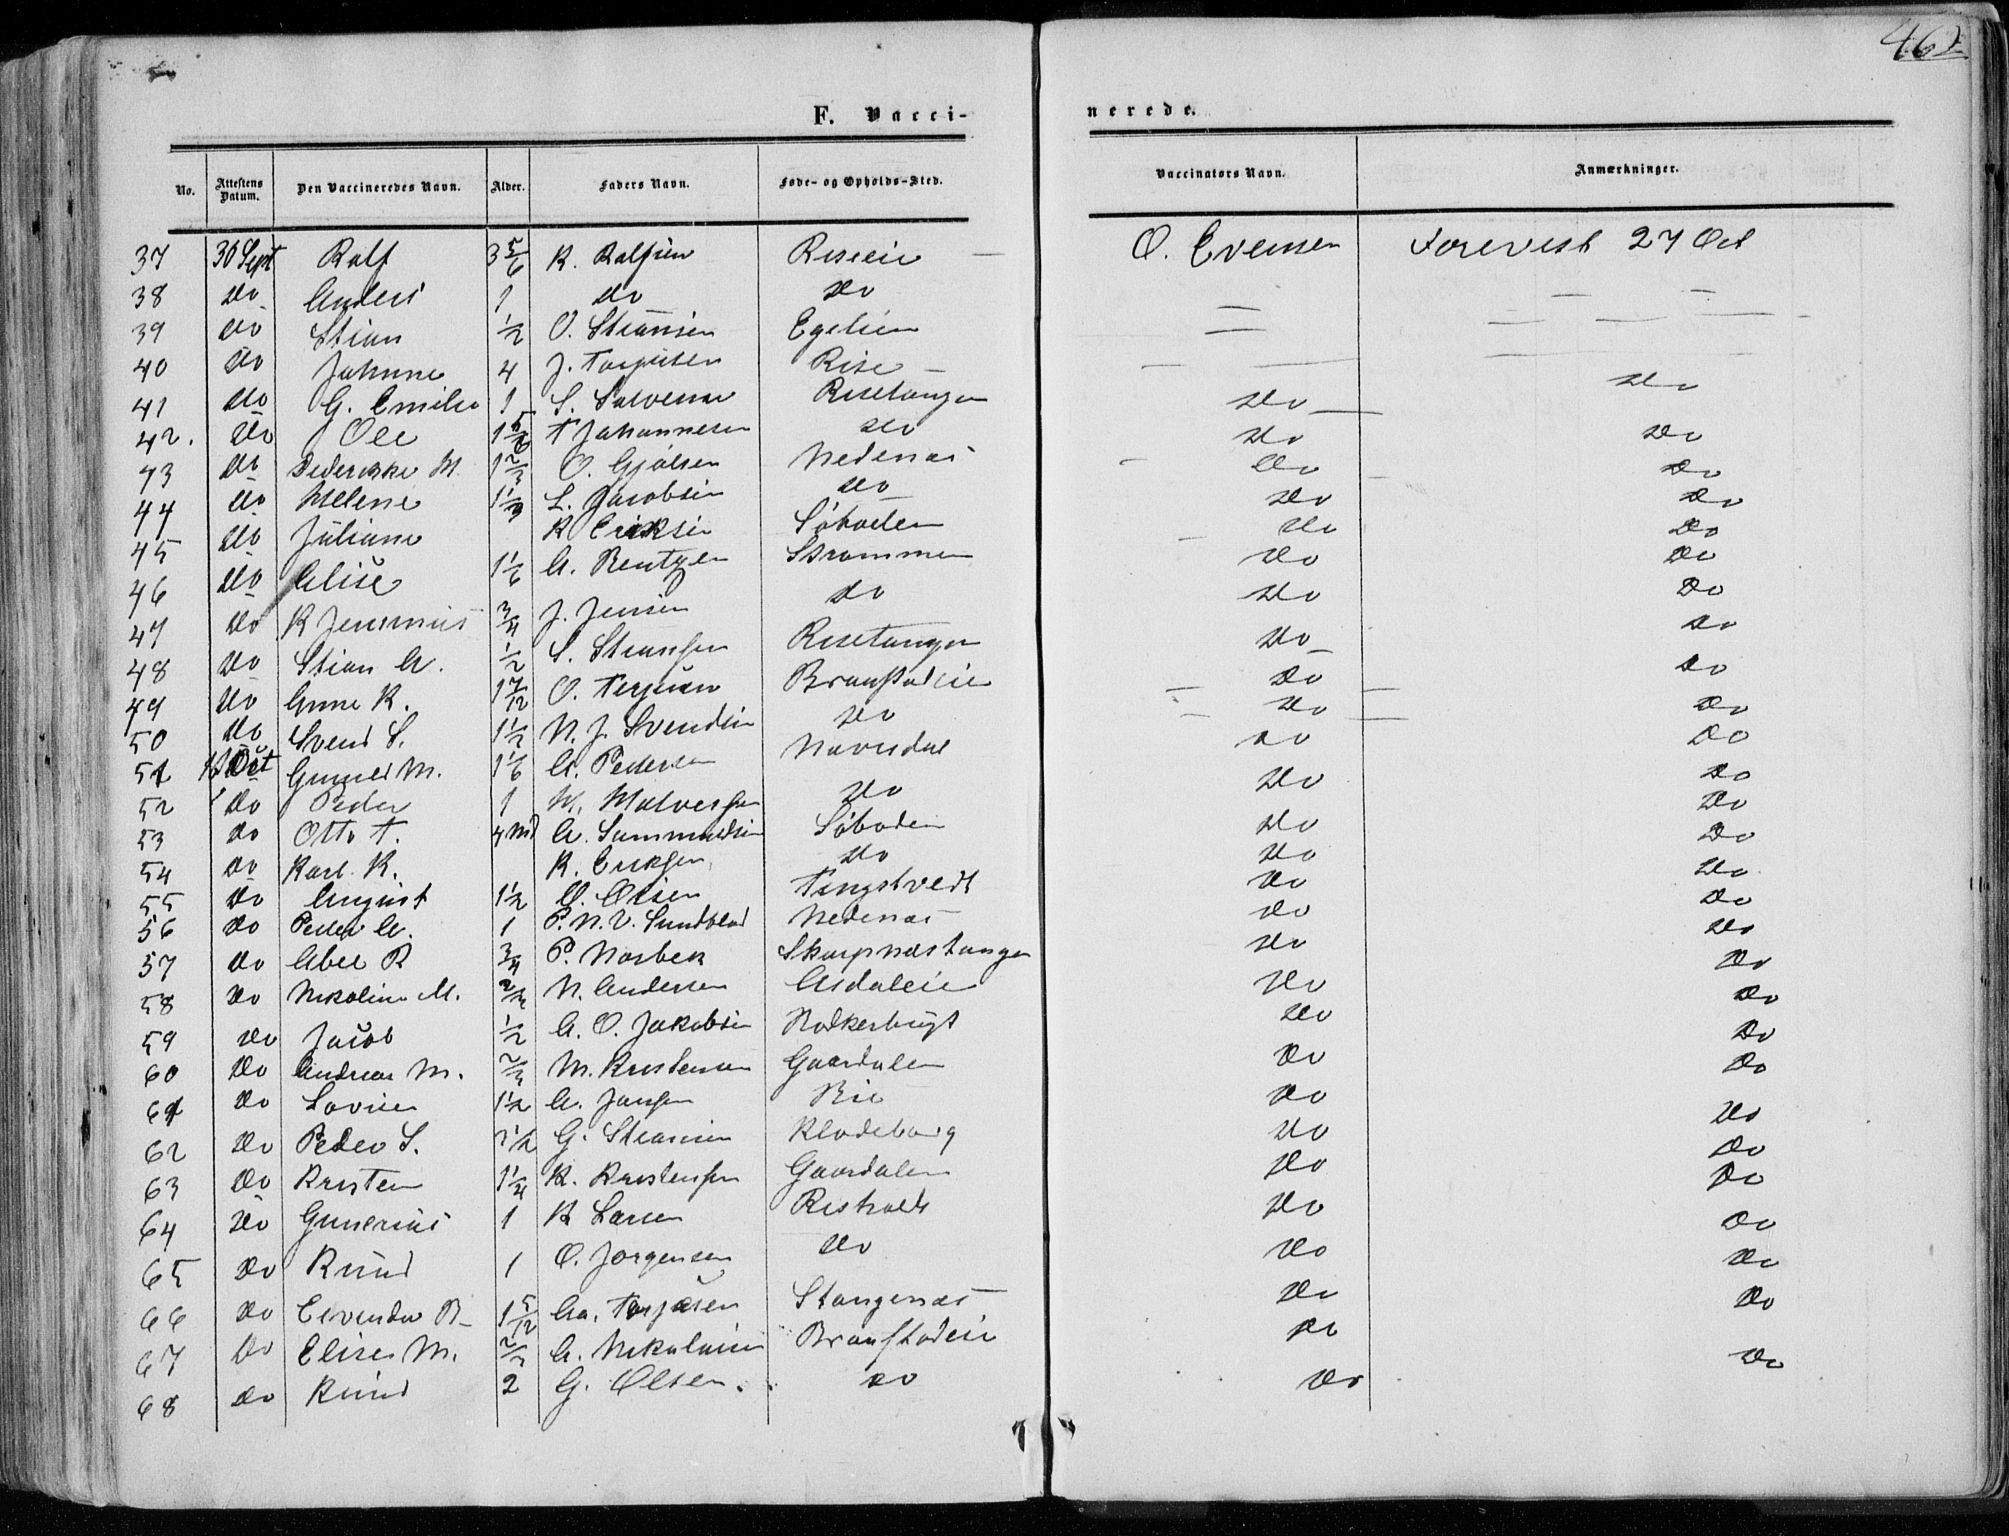 462
F. Vacci- nerede.
No. Attestens Datum. Den Vaccineredes Navn. Alder. Faders Navn. Føde- og Opholds-Sted. Vaccinators Navn. Anmærkninger.
37 30 Sept Rolf 3 5/6 K. Rolfsen O. Evensen Forevist 27 Oct
38 Do Anders 1 Do Do
39 Do Stian 1/2 O. Stiansen
40 Do Johanne 4 J. Terjusen Rise
41 Do G. Emilie 1 S. Salvesen Risetangen Do Do
42. Do Ole 1 5/6 T Johannesen Do Do Do
43 Do Pederikke M. 1 2/3 O. Gjølsen Nedenæs Do Do
44 Do Helene 1 1/3 L. Jacobsen Do Do Do
45 Do Juliane K Eriksen Søboden Do Do
46 Do Elise 1 1/6 A. Bentzen Strømmen Do Do
47 Do K Jeremias 3/4 J. Jensen Do Do Do
48 Do Stian A. 1/2 S. Stiansen Risetangen Do Do
49 Do Anne K. 1 7/12 O. Terjusen Do Do
50 Do Svend S. 1 1/2 N. J. Svendsen Do Do Do
51 Oct Gunild M. 1 1/6 A. Pedersen Do Do
52 Do Peder 1 Do Do Do
53 Do Otto T. 4 Md A. Sammuelsen Søboden Do Do
54 Do Karl K. K. Eriksen Do Do Do
55 Do August 1 1/2 O. Olsen Tingstvedt Do Do
56 Do Peder A. 1 P. N. V. Sundblad Nedenæs Do Do
57 Do Abel R 3/4 P. Norbek Skarpnæstangen Do Do
58 Do Nikoline M. 2/3 N. Andersen Asdaleie Do Do
59 Do Jacob 1/2 A. O. Jakobsen Do Do
60 Do Andreas M. 2/3 M. Kristensen Gaardalen Do Do
61 Do Lovise 1 1/2 A. Jansen Bie Do Do
62 Do Peder S. G. Stiansen Klodeborg Do Do
63 Do Kristen K. Kristensen Gaardalen Do Do
64 Do Gunerius 1 K Larsen Risholt Do Do
65 Do Knud 1 O. Jørgensen Do Do Do
66 Do 1 5/12 Aa. Terjesen Stangenæs Do Do
67 Do Elise M. 2/3 A. Nikolaisen Do Do
68 Do Knud 2 G. Olsen. Do Do Do